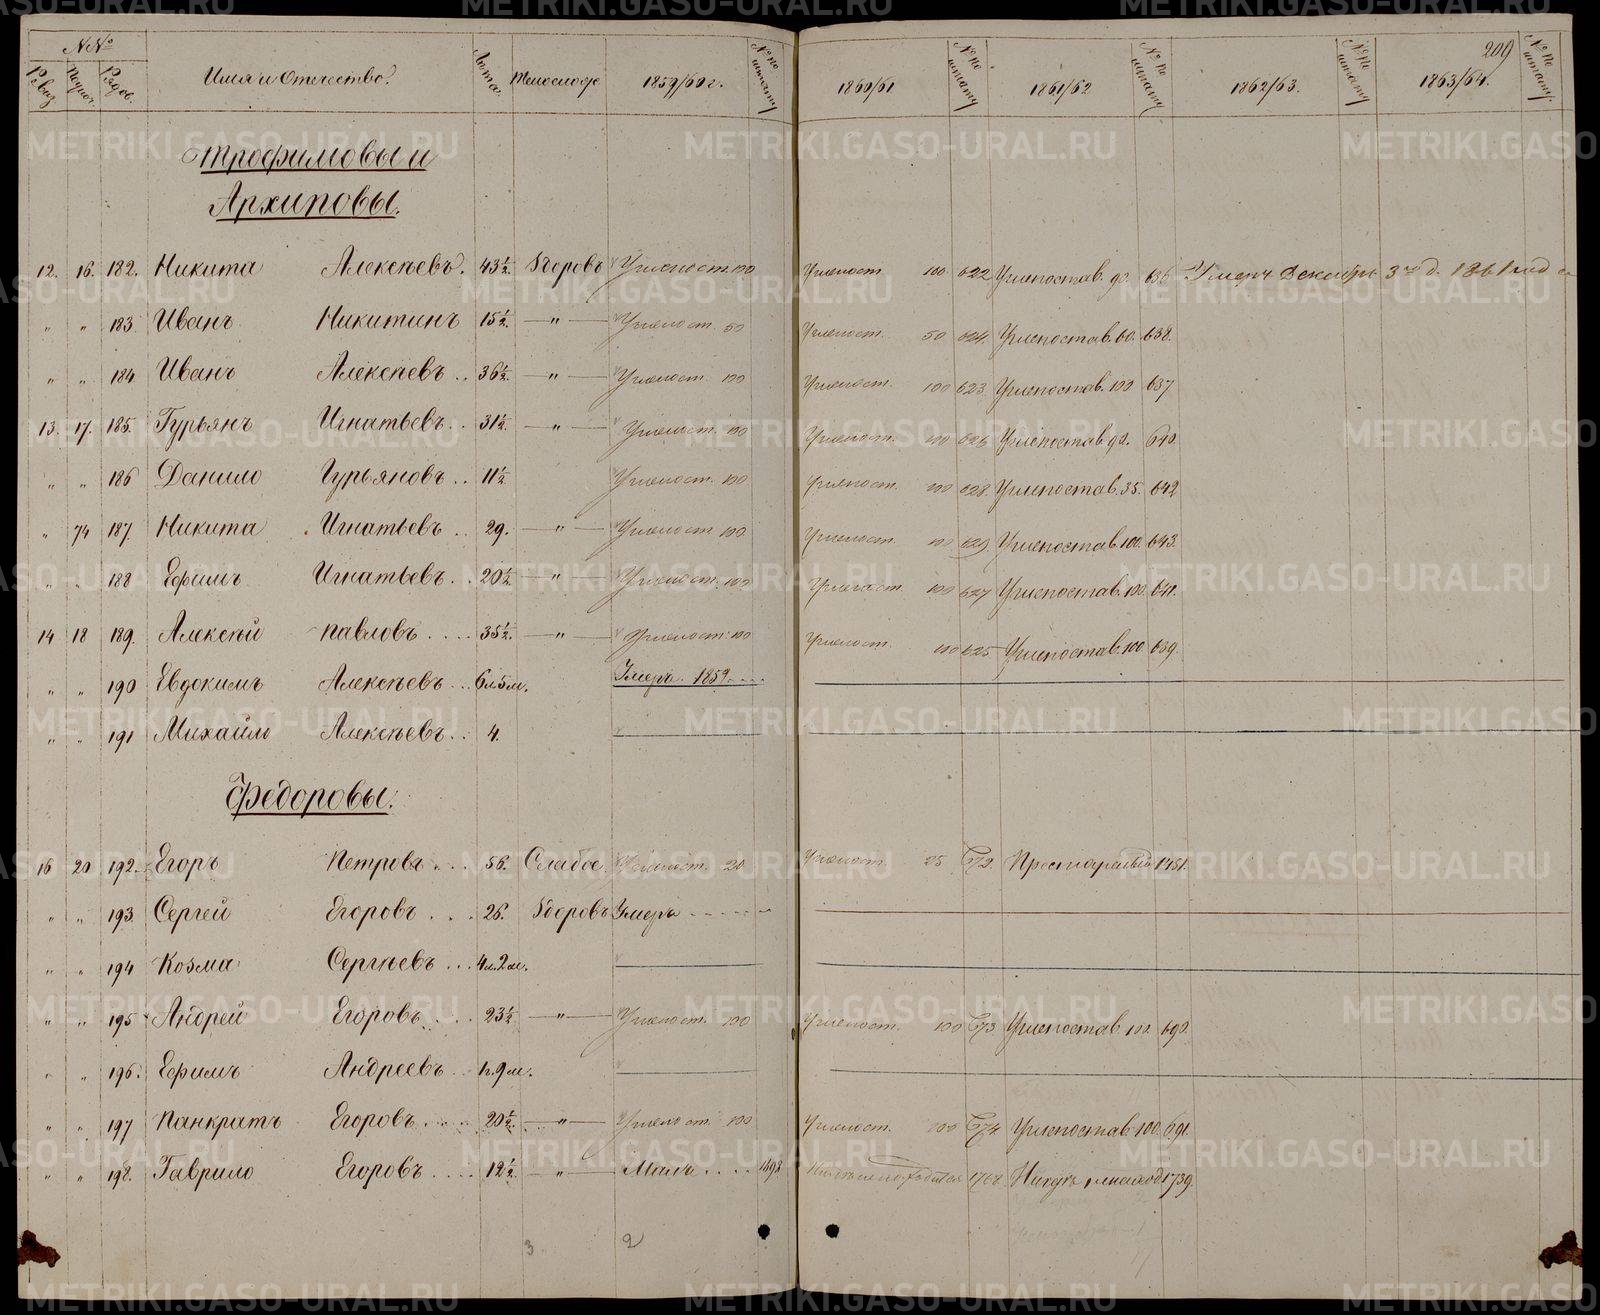 №№ Имя и Отчество. Лѣта. Тѣлослож. 1859/60 г. №№ по штату 1860/61 №№ по штату 1861/62 №№ по штату 1862/63. №№ по штату 1863/64. №№ по штату. 209
Трофимовы и
Архиповы.
12. 16. 182. Никита Алексѣевъ. 43½ Здоровъ Углепост. 100 Углепост. 100 622 Углепостав. 90. 636 Умеръ Декабря 3го д. 1861
„ „ 183. Иванъ Никитинъ 15½. —„— Углепост. 50 Углепост. 50 624. Углепостав. 60. 638.
„ „ 184. Иванъ Алексѣевъ .. 36½. —„— Углепост. 100 Углепост. 100 623 Углепостав. 100. 637
13. 17. 185. Гурьянъ Игнатьевъ .. 31½. —„— Углепост. 100 Углепост. 100 626 Углепостав. 90. 640.
„ „ 186 Данило Гурьяновъ .. 11½ Углепост. 100 Углепост. 100 628. Углепостав. 35. 642
„ 74 187. Никита Игнатьевъ .. 29. —„— Углепост. 100 Углепост. 100 629. Углепостав. 100. 643.
„ „ 188 Ефимъ Игнатьевъ .. 20½ —„— Углепост. 100 Углепост. 100 627 Углепостав. 100. 641.
14 18 189. Алексѣй Павловъ .... 35½. —„— Углепост. 100 Углепост. 100 625 Углепостав. 100 639.
„ „ 190 Евдокимъ Алексѣевъ ... 6л.5м. Умеръ. 1859 ....
„ „ 191 Михайло Алексѣевъ .. 4.
Федоровы.
16 20 192. Егоръ Петровъ ... 56. Слабое. Углепост. 20 Углепост. 25 672. 1451.
„ „ 193. Сергей Егоровъ ... 26. Здоровъ Умеръ
„ „ 194 Козма Сергѣевъ ... 4л.2м.
„ „ 195 Андрей Егоровъ ... 23½ —„— Углепост. 100 Углепост. 100 673 Углепостав. 100. 690.
„ „ 196. Ефимъ Андреевъ .. 1г.9м.
„ „ 197 Панкратъ Егоровъ .... 20½. —„— Углепост. 100 Углепост. 100 674 Углепостав. 100. 691.
„ „ 198. Гаврило Егоровъ .... 12½ —„— Малъ .... 1768 1739.
3 2
METRIKI.GASO-URAL.RU